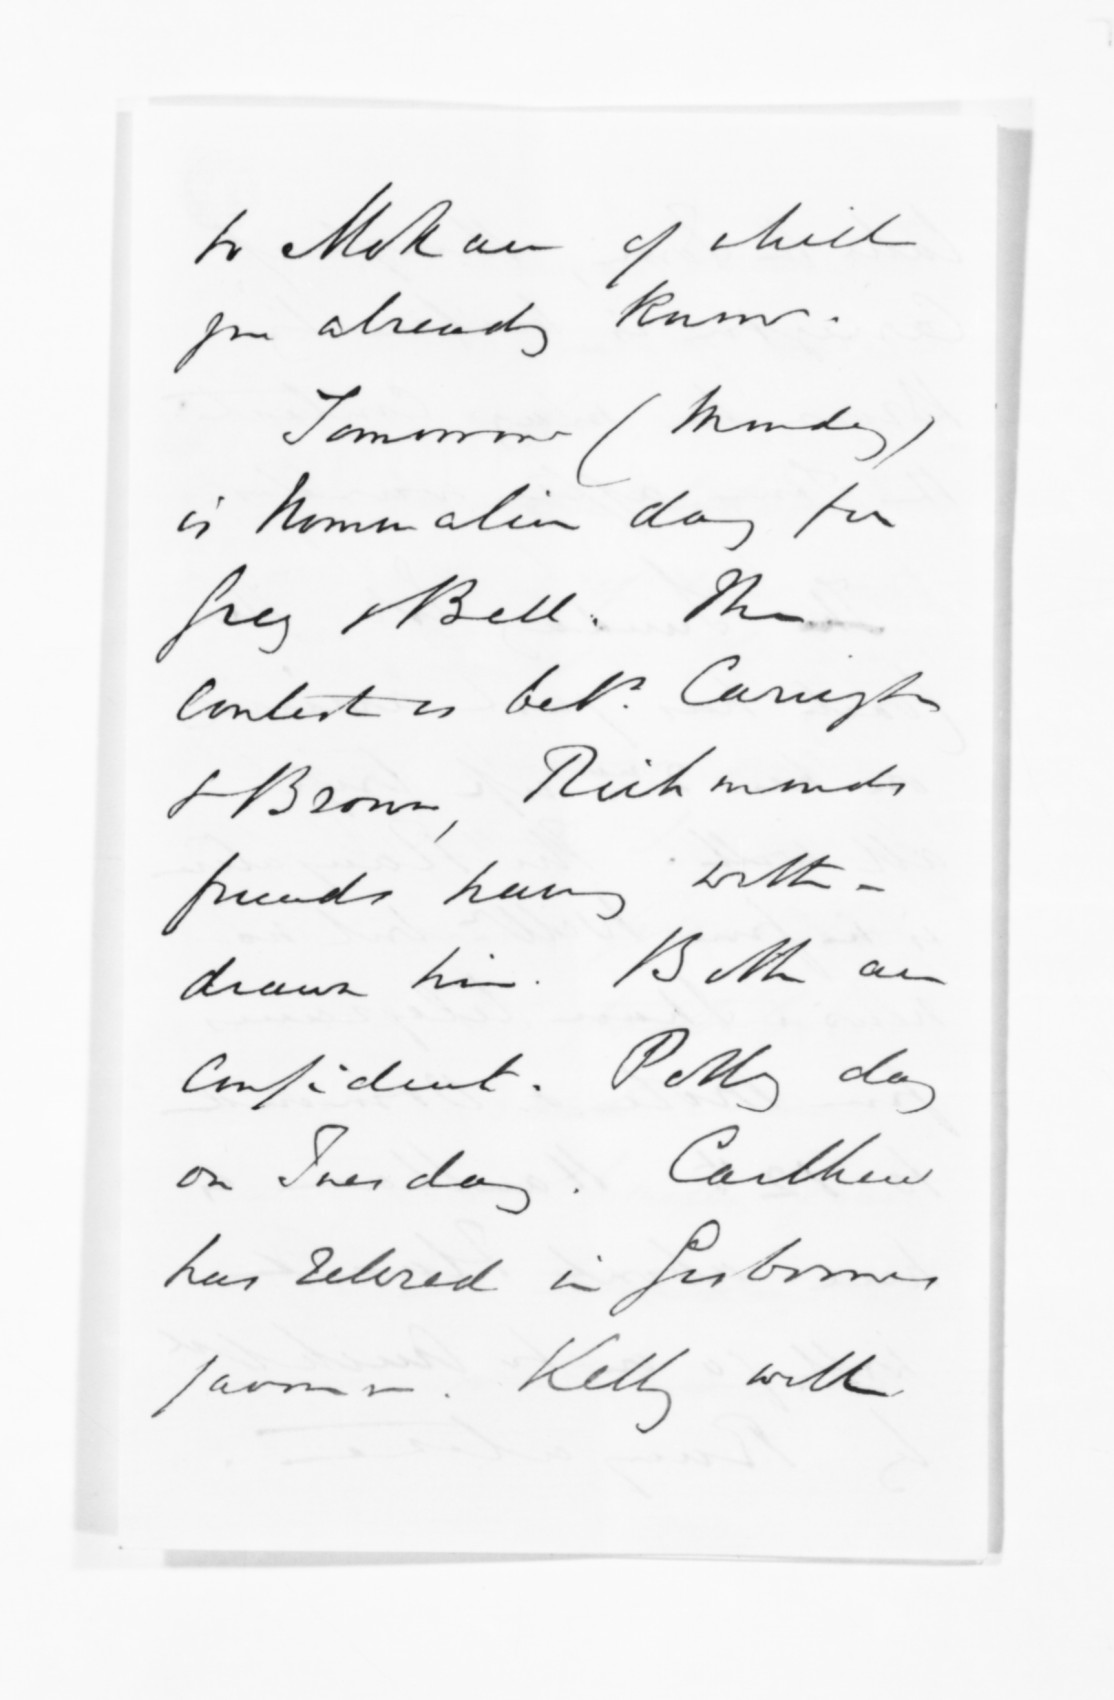 to Mokau of which
you already know.
Tomorrow (Monday)
is Nomination day for
Grey & Bell. The
contest is betn. Carrington
& Brown, Richmonds
friends having with-
drawn him. Both are
confident. Polling day
on Tuesday. Carthew
has retired in Gisbornes
favour. Kelly will